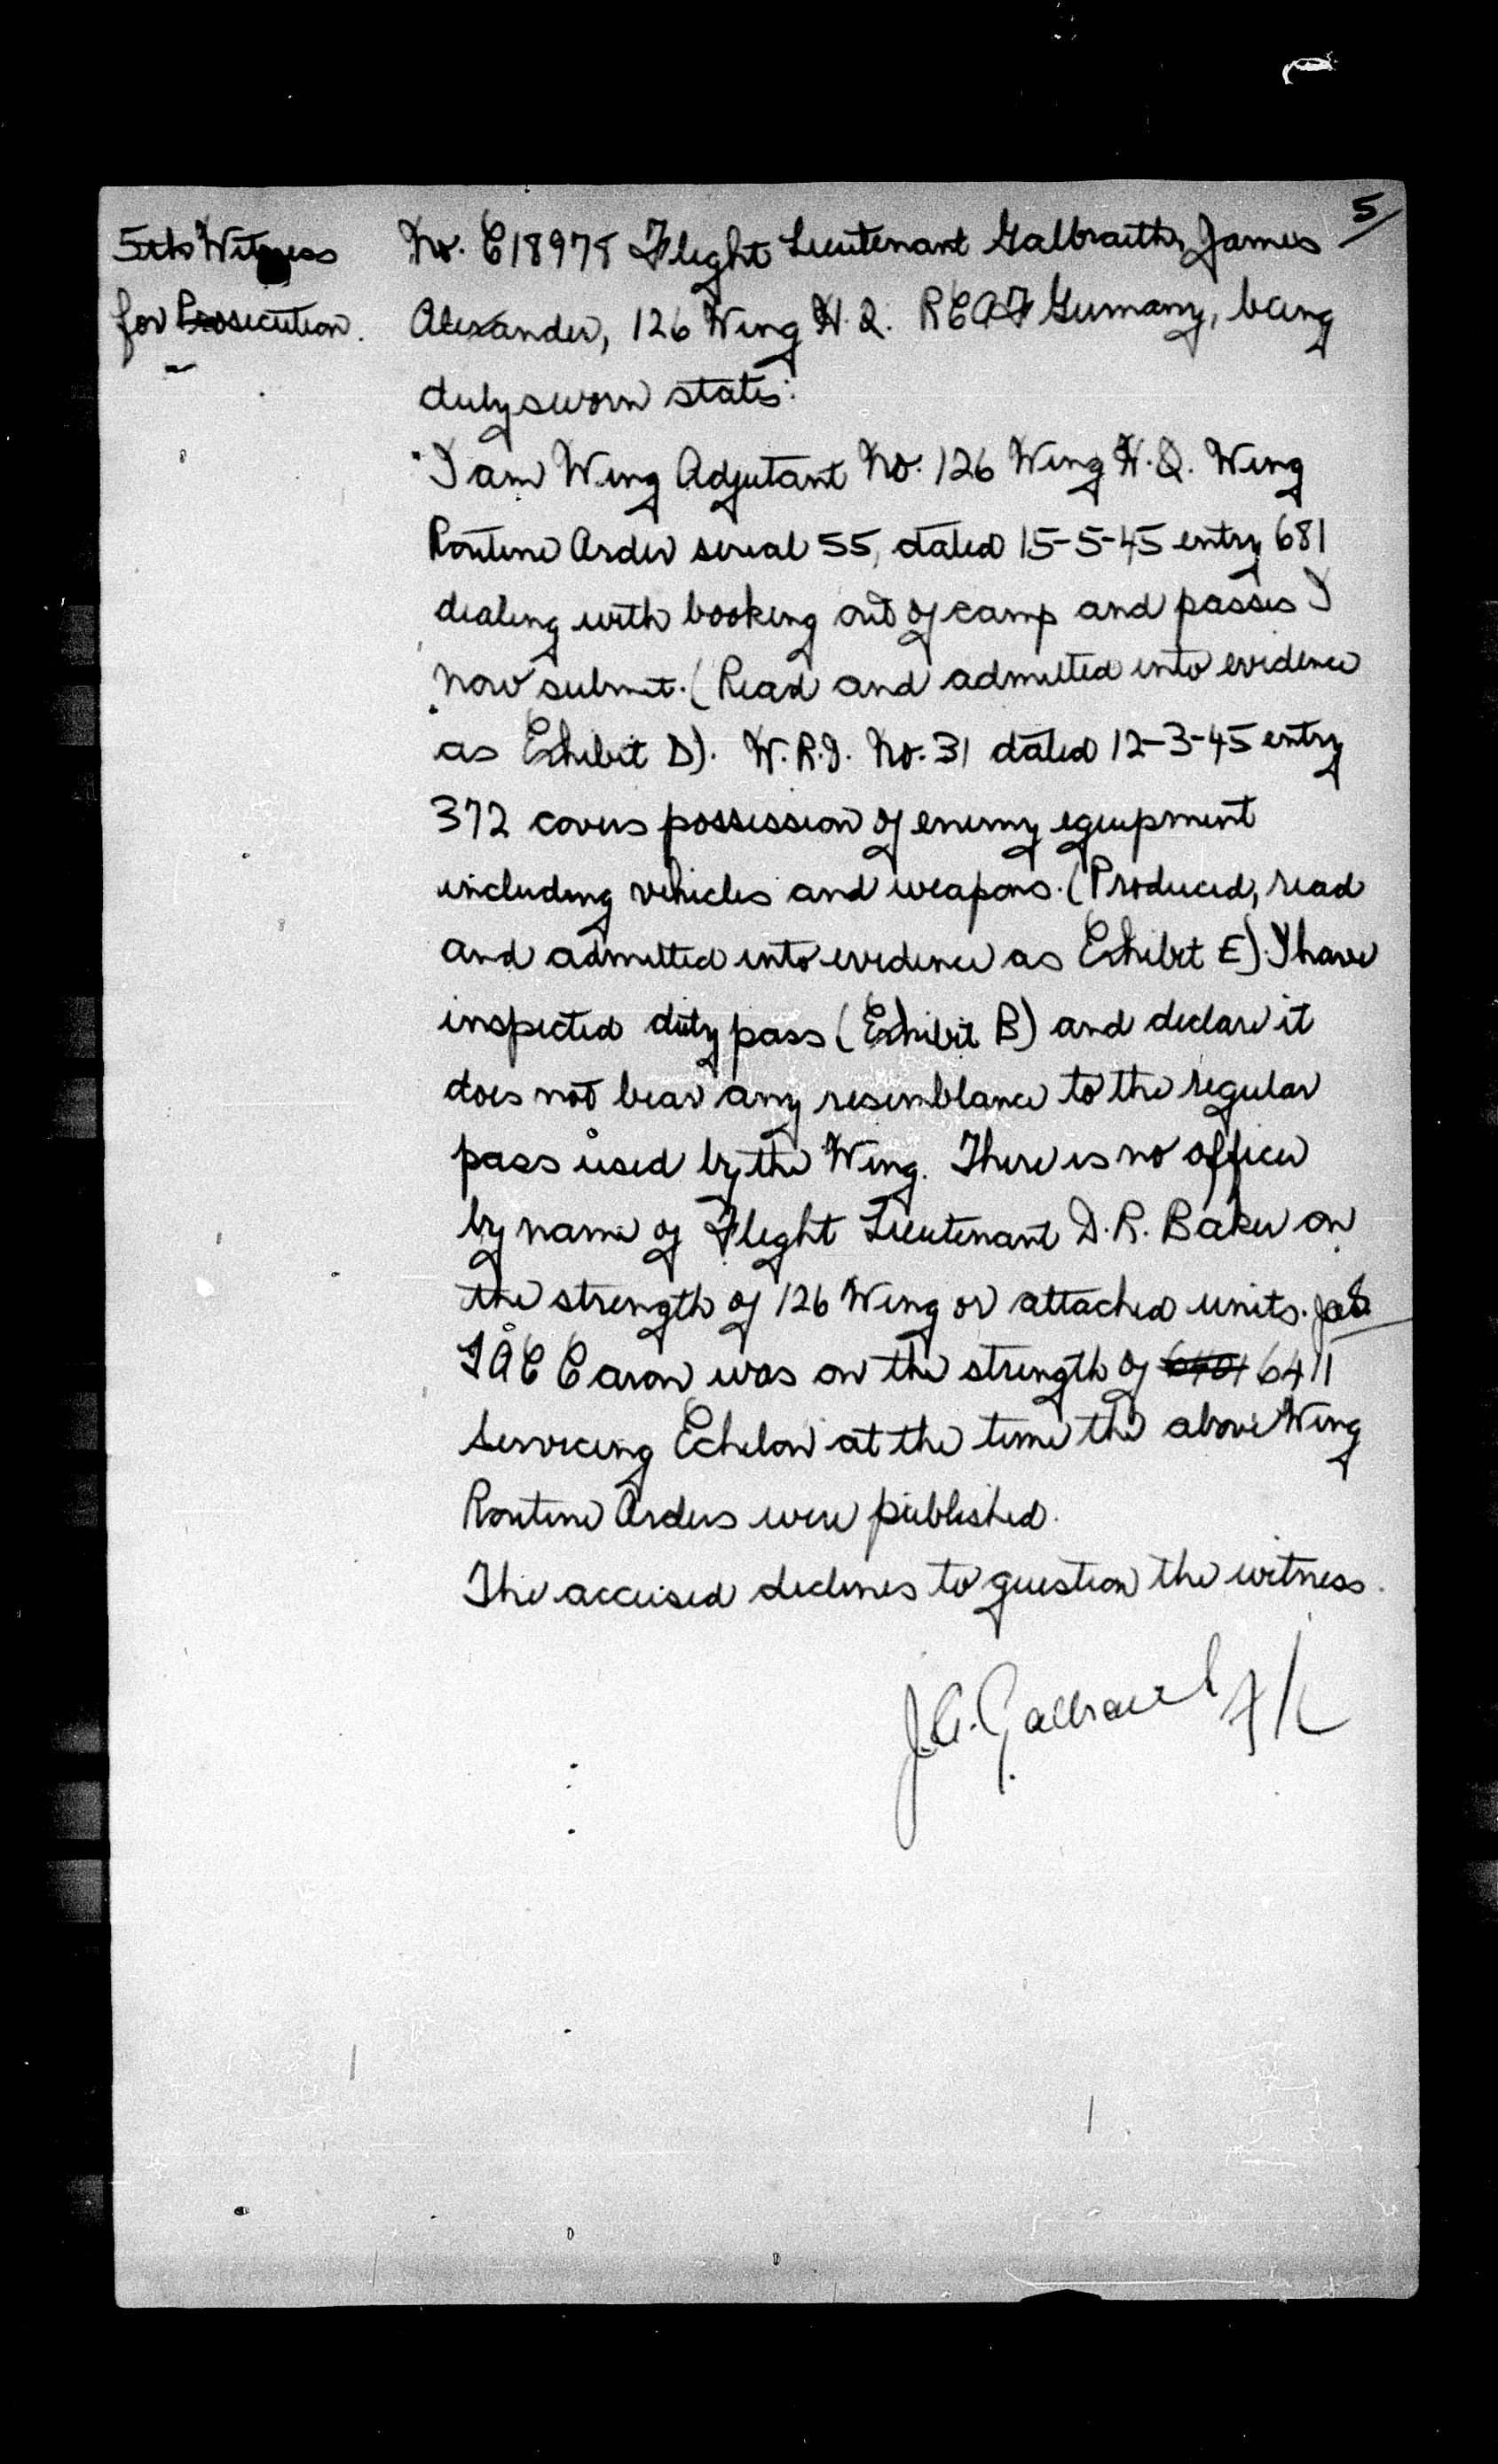 5
5th Witness
for Prosecution.
No. C18978 Flight Lieutenant Galbraith, James
Alexander, 126 Wing H.Q. RCAF Germany, being
duly sworn states:
"I am Wing Adjutant No. 126 Wing H.Q. Wing
Routine Order serial 55, dated 15-5-45 entry 681
dealing with booking out of camp and passes I
now submit. (Read and admitted into evidence
as Exhibit D). W.R.O. No. 31 dated 12-3-45 entry
372 covers possession of enemy equipment
including vehicles and weapons. (Produced, read
and admitted into evidence as Exhibit E). I have
inspected duty pass (Exhibit B) and declare it
does not bear any resemblance to the regular
pass used by the Wing. There is no officer
by name of Flight Lieutenant D. R. Baker on
the strength of 126 Wing or attached units. JAG
LAC Caron was on the strength of 6411
Servicing Echelon at the time the above Wing
Routine Orders were published.
The accused declines to question the witness.
J.A. Galbraith F/L